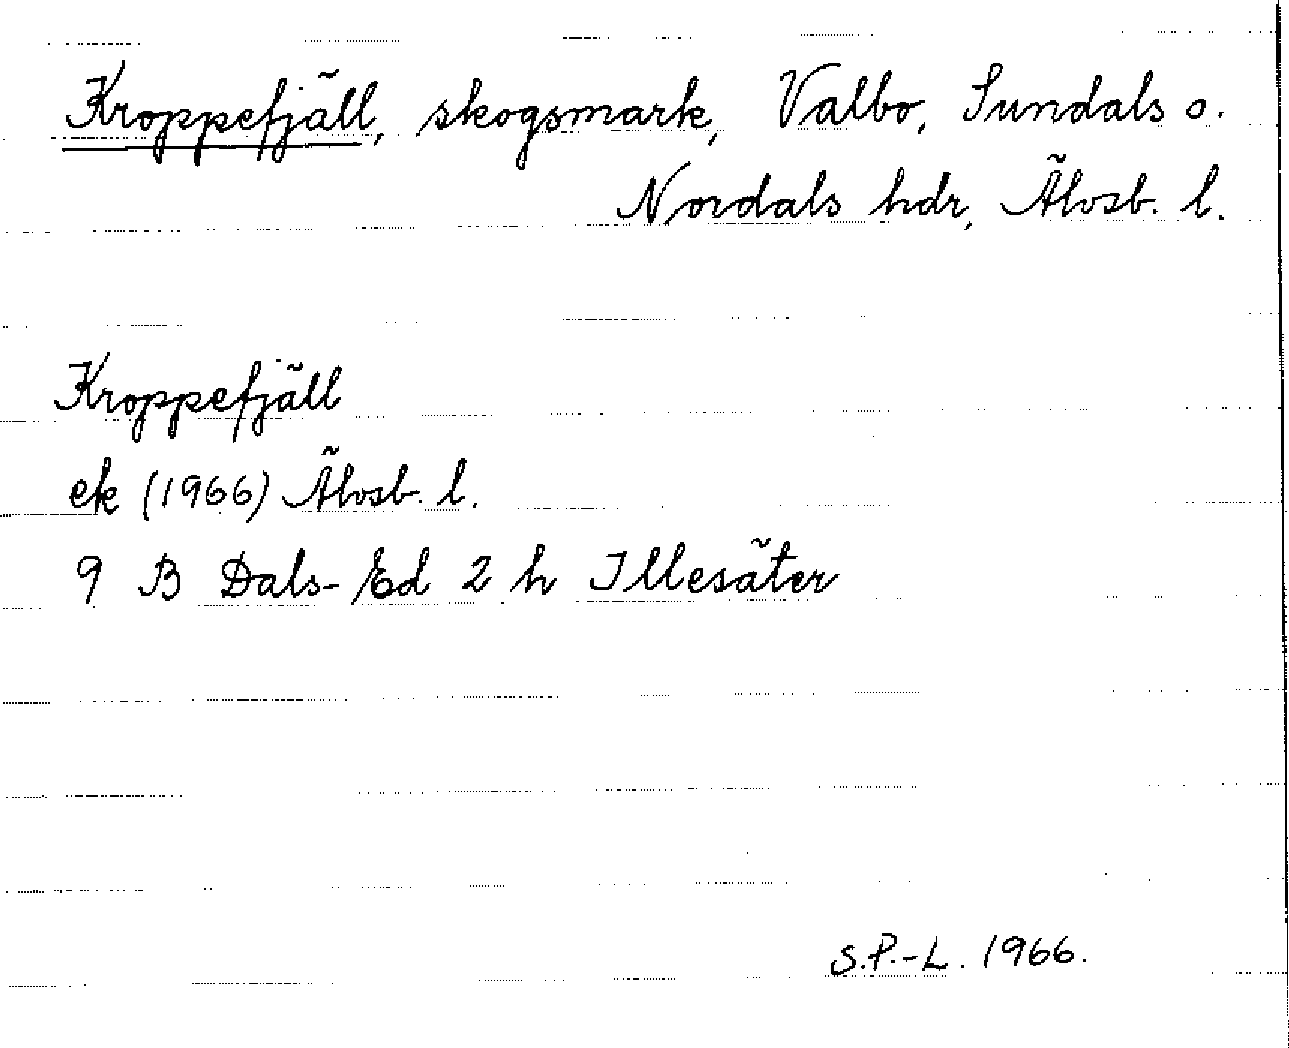 Kroppefjäll, skogsmark, Valbo, Sundals o.
Nordals hdr, Älvsb. l.
Kroppefjäll
ek (1966) Älvsb. l.
9 B Dals-Ed 2 h Illesäter
S.P.-L. 1966.